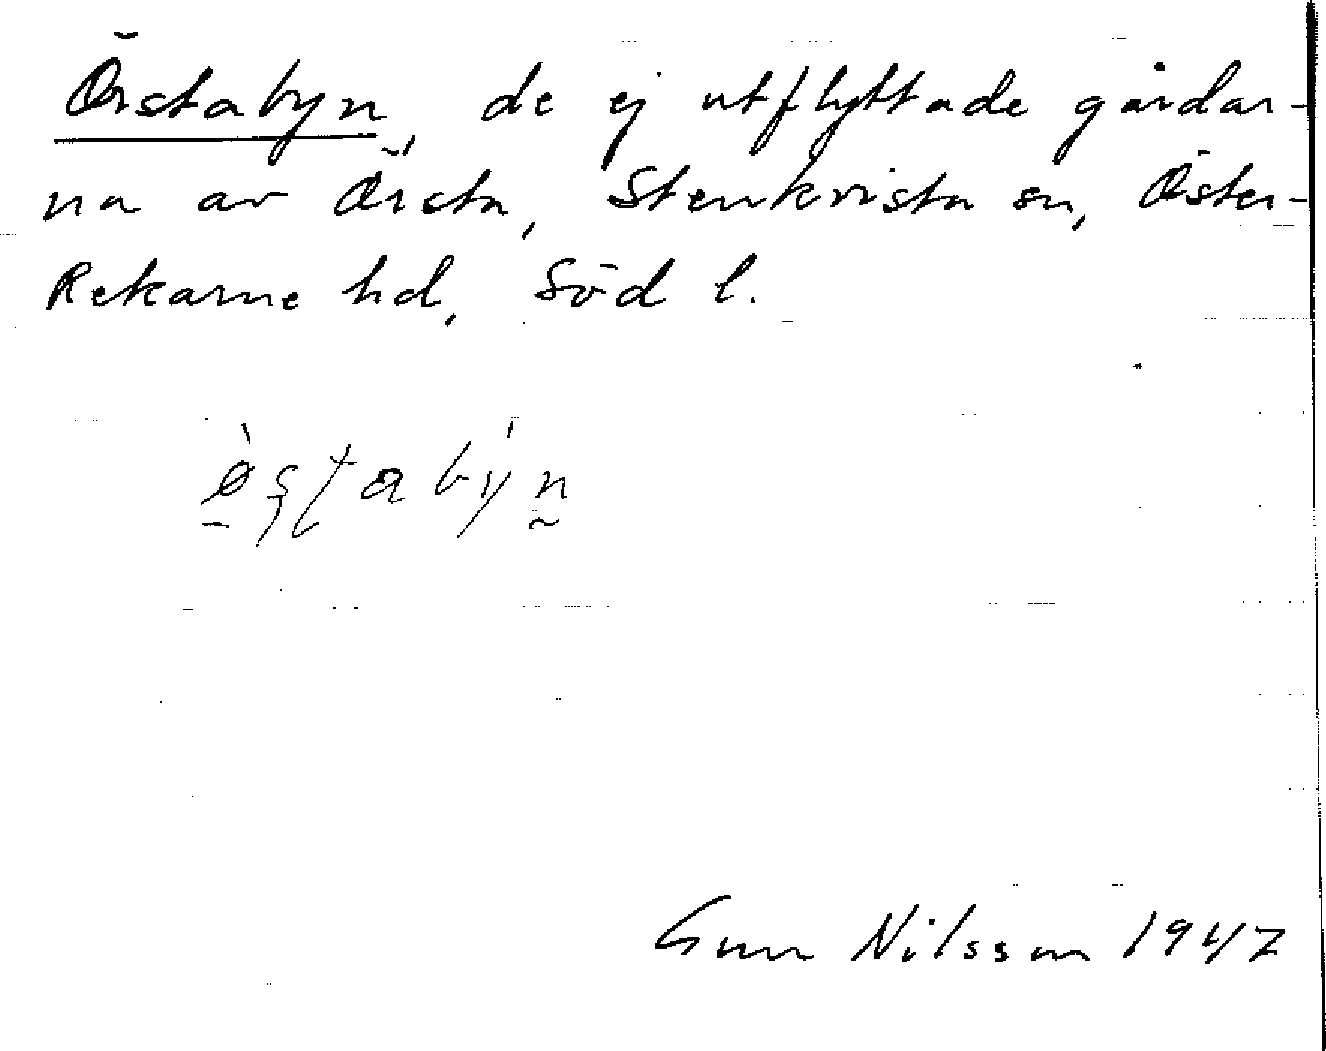 Örstabyn, de ej utflyttade gårdar-
na av Örsta, Stenkvista sn, Öster-
Rekarne hd, Söd l.
Gun Nilsson 1947